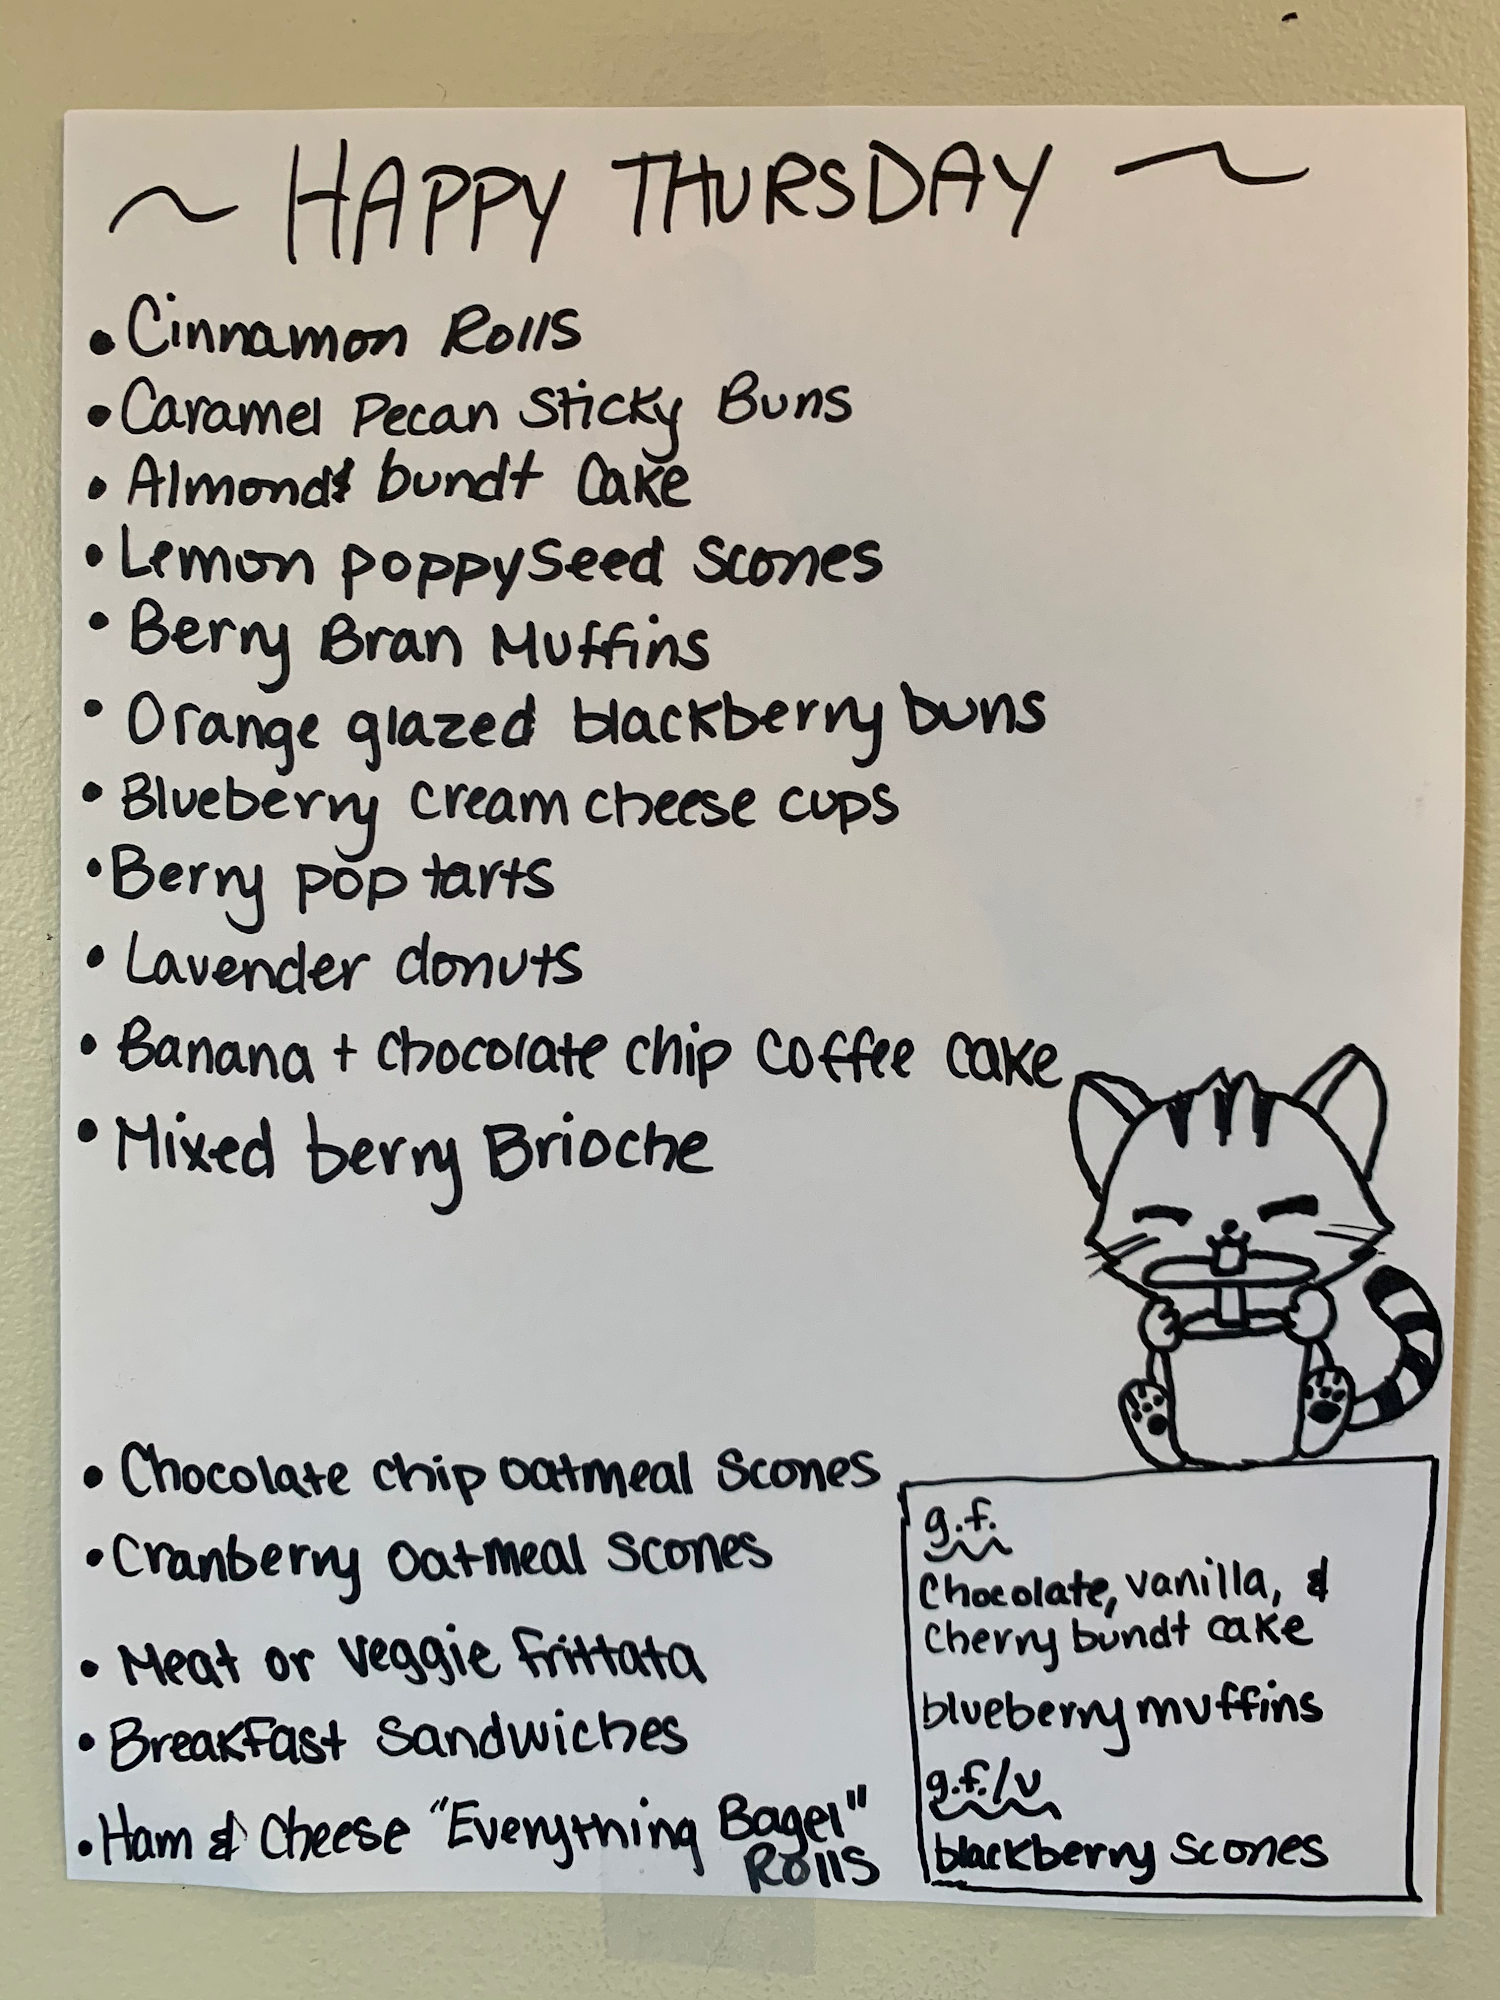 ~ HAPPY THURSDAY ~
• Cinnamon Rolls
• Caramel Pecan Sticky Buns
• Almond bundt Cake
• Lemon poppyseed Scones
• Berry Bran Muffins
• Orange glazed blackberry buns
• Blueberry cream cheese cups
• Berry pop tarts
• Lavender donuts
• Banana + chocolate chip coffee cake
• Mixed berry Brioche
• Chocolate chip oatmeal Scones
• Cranberry oatmeal Scones
• Meat or veggie frittata
• Breakfast Sandwiches
• Ham & Cheese "Everything Bagel"
Rolls
g.f.
Chocolate, vanilla, &
cherry bundt cake
blueberry muffins
g.f./v
blackberry scones